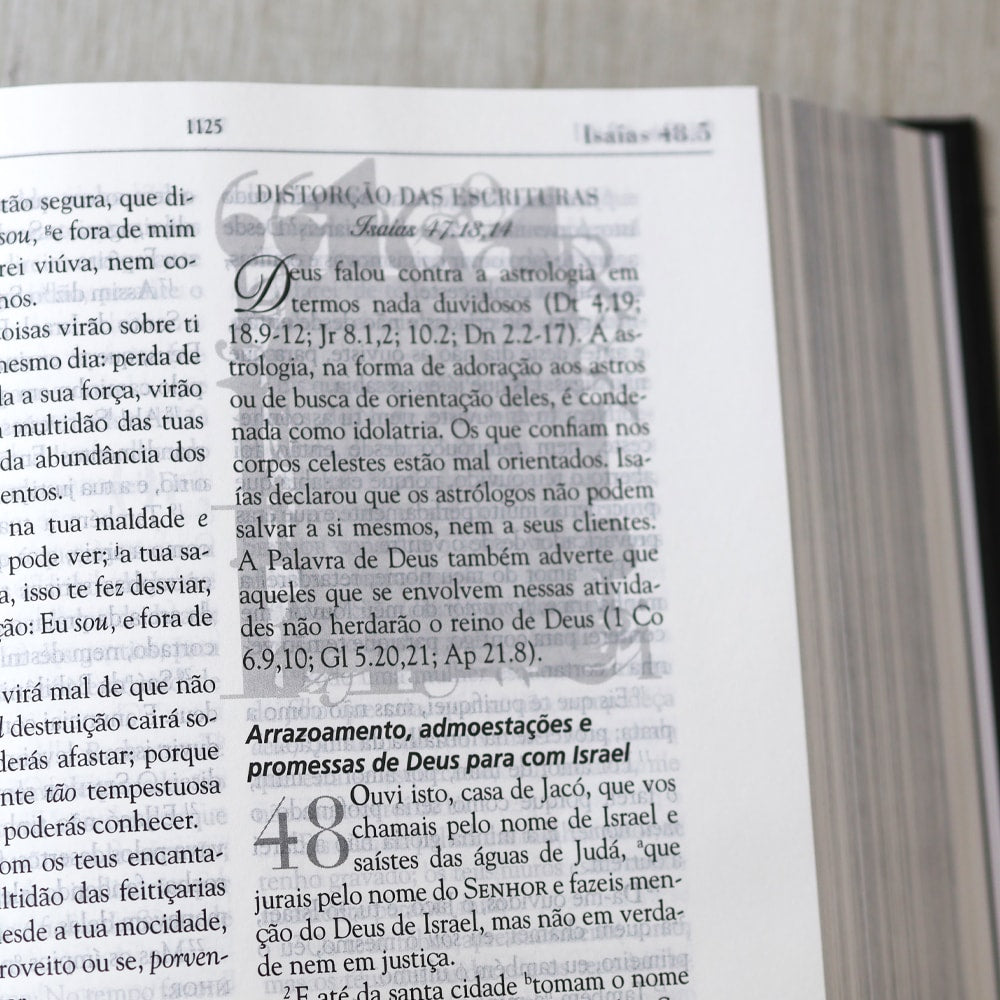 1125
Isaías 48.5
tão segura, que di-
sou, ᵍe fora de mim
rei viúva, nem co-
hos.
oisas virão sobre ti
mesmo dia: perda de
a a sua força, virão
multidão das tuas
da abundância dos
entos.
na tua maldade e
pode ver; ʲa tua sa-
a, isso te fez desviar,
ção: Eu sou, e fora de
virá mal de que não
destruição cairá so-
derás afastar; porque
nte tão tempestuosa
poderás conhecer.
om os teus encanta-
ltidão das feitiçarias
desde a tua mocidade,
roveito ou se, porven-
DISTORÇÃO DAS ESCRITURAS
Isaías 47.13,14
Deus falou contra a astrologia em
termos nada duvidosos (Dt 4.19;
18.9-12; Jr 8.1,2; 10.2; Dn 2.2-17). A as-
trologia, na forma de adoração aos astros
ou de busca de orientação deles, é conde-
nada como idolatria. Os que confiam nos
corpos celestes estão mal orientados. Isa-
ías declarou que os astrólogos não podem
salvar a si mesmos, nem a seus clientes.
A Palavra de Deus também adverte que
aqueles que se envolvem nessas ativida-
des não herdarão o reino de Deus (1 Co
6.9,10; Gl 5.20,21; Ap 21.8).
Arrazoamento, admoestações e
promessas de Deus para com Israel
48 Ouvi isto, casa de Jacó, que vos
chamais pelo nome de Israel e
saístes das águas de Judá, ᵃque
jurais pelo nome do SENHOR e fazeis men-
ção do Deus de Israel, mas não em verda-
de nem em justiça.
² E até da santa cidade ᵇtomam o nome